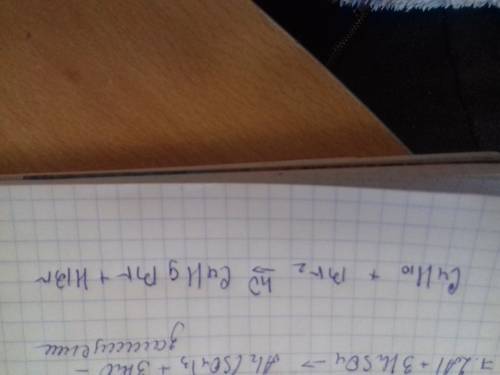 2Al + 3H₂SO₄ → Al₂(SO₄)₃ + 3H₂ –
замещение
C₄H₁₀ + Br₂ → C₄H₉Br + HBr